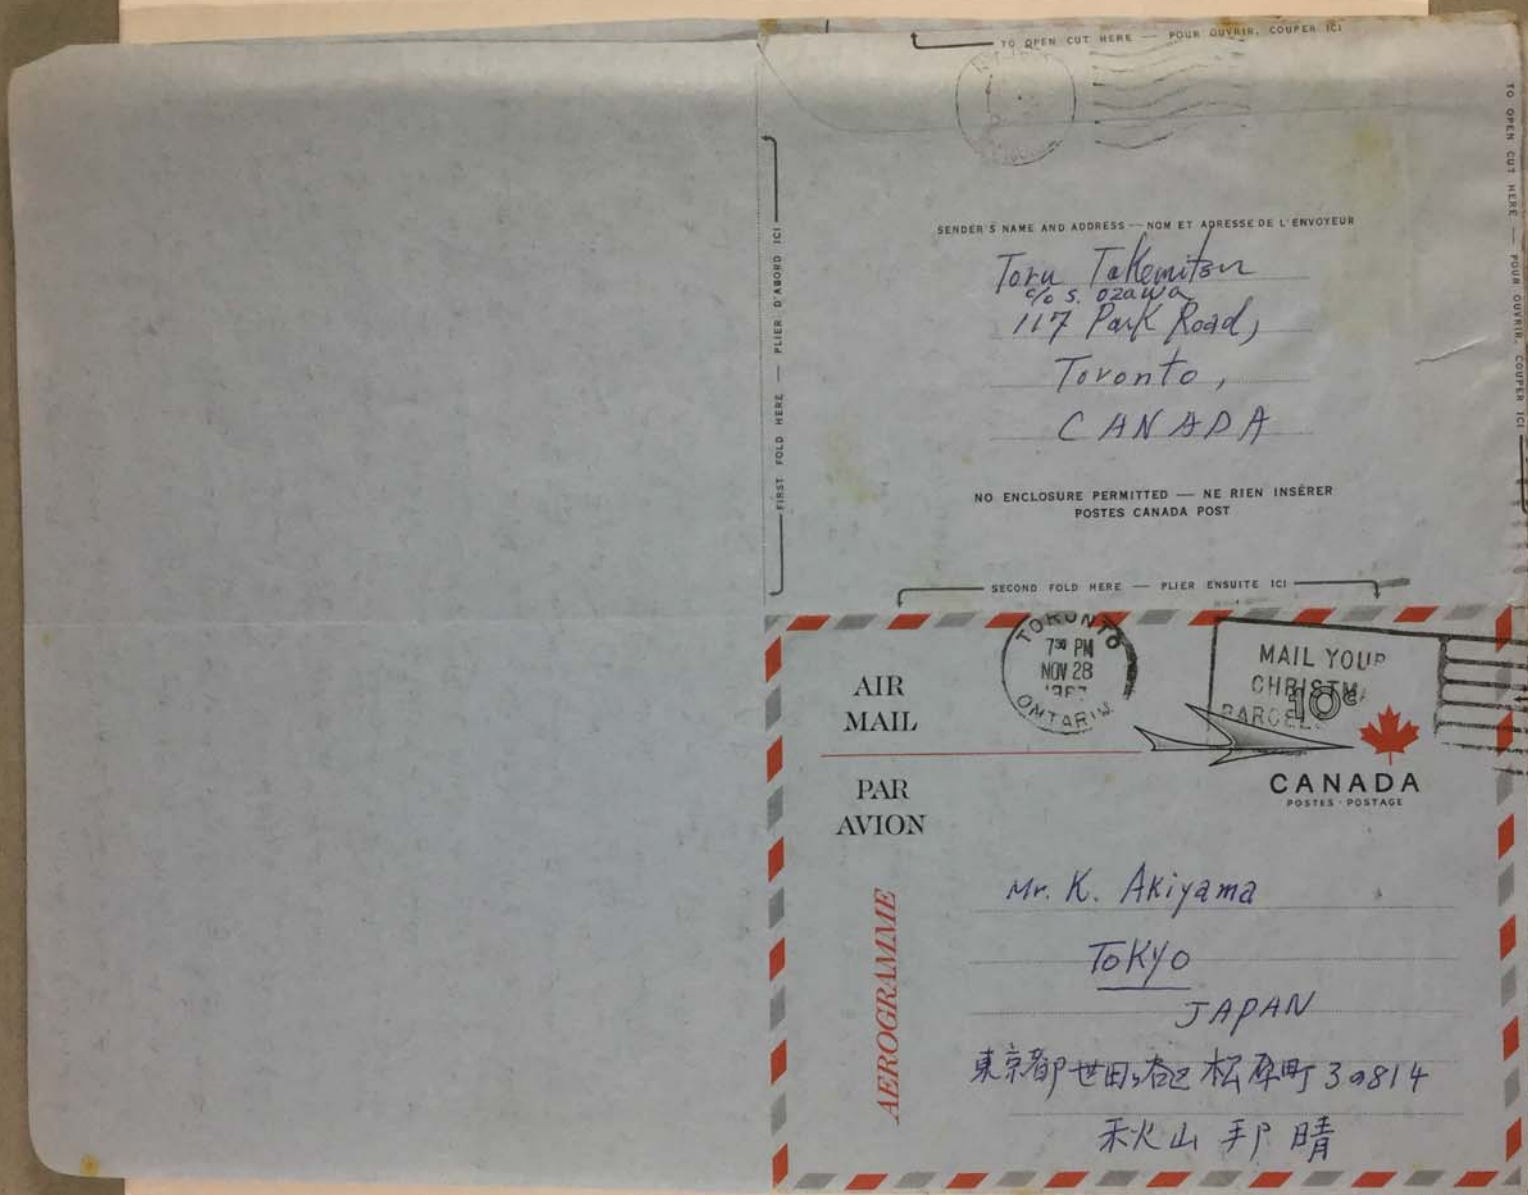 TO OPEN CUT HERE — POUR OUVRIR, COUPER ICI
TO OPEN CUT HERE — POUR OUVRIR, COUPER ICI
FIRST FOLD HERE — PLIER D'ABORD ICI
SENDER'S NAME AND ADDRESS — NOM ET ADRESSE DE L'ENVOYEUR
Toru Takemitsu
c/o S. Ozawa
117 Park Road,
Toronto,
CANADA
NO ENCLOSURE PERMITTED — NE RIEN INSÉRER
POSTES CANADA POST
SECOND FOLD HERE — PLIER ENSUITE ICI
TORONTO
7 30 PM
NOV 28
ONTARIO
MAIL YOUR
CHRISTMA
PARCEL
10¢
AIR
MAIL
PAR
AVION
CANADA
POSTES · POSTAGE
AEROGRAMME
Mr. K. Akiyama
TOKYO
JAPAN
東京都世田ヶ谷区松原町3の814
秋山邦晴